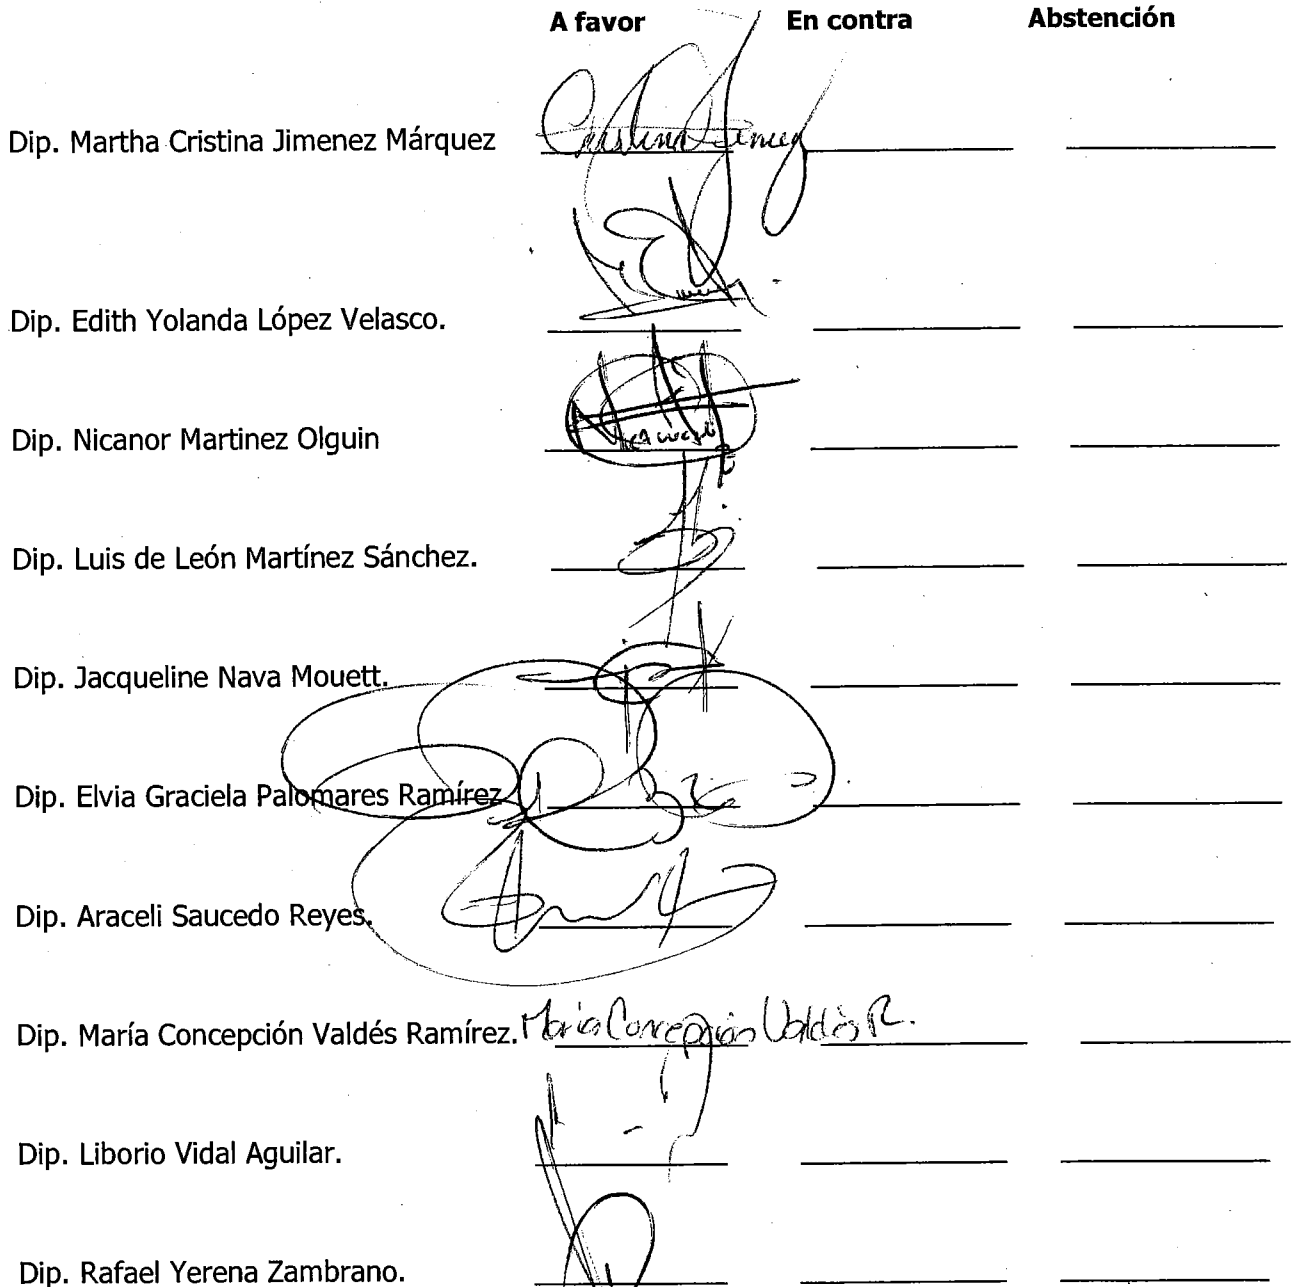 A favor En contra Abstención
Dip. Martha Cristina Jimenez Márquez Cristina Jimenez
Dip. Edith Yolanda López Velasco.
Dip. Nicanor Martinez Olguin
Dip. Luis de León Martínez Sánchez.
Dip. Jacqueline Nava Mouett.
Dip. Elvia Graciela Palomares Ramírez
Dip. Araceli Saucedo Reyes.
Dip. María Concepción Valdés Ramírez. María Concepción Valdés R.
Dip. Liborio Vidal Aguilar.
Dip. Rafael Yerena Zambrano.